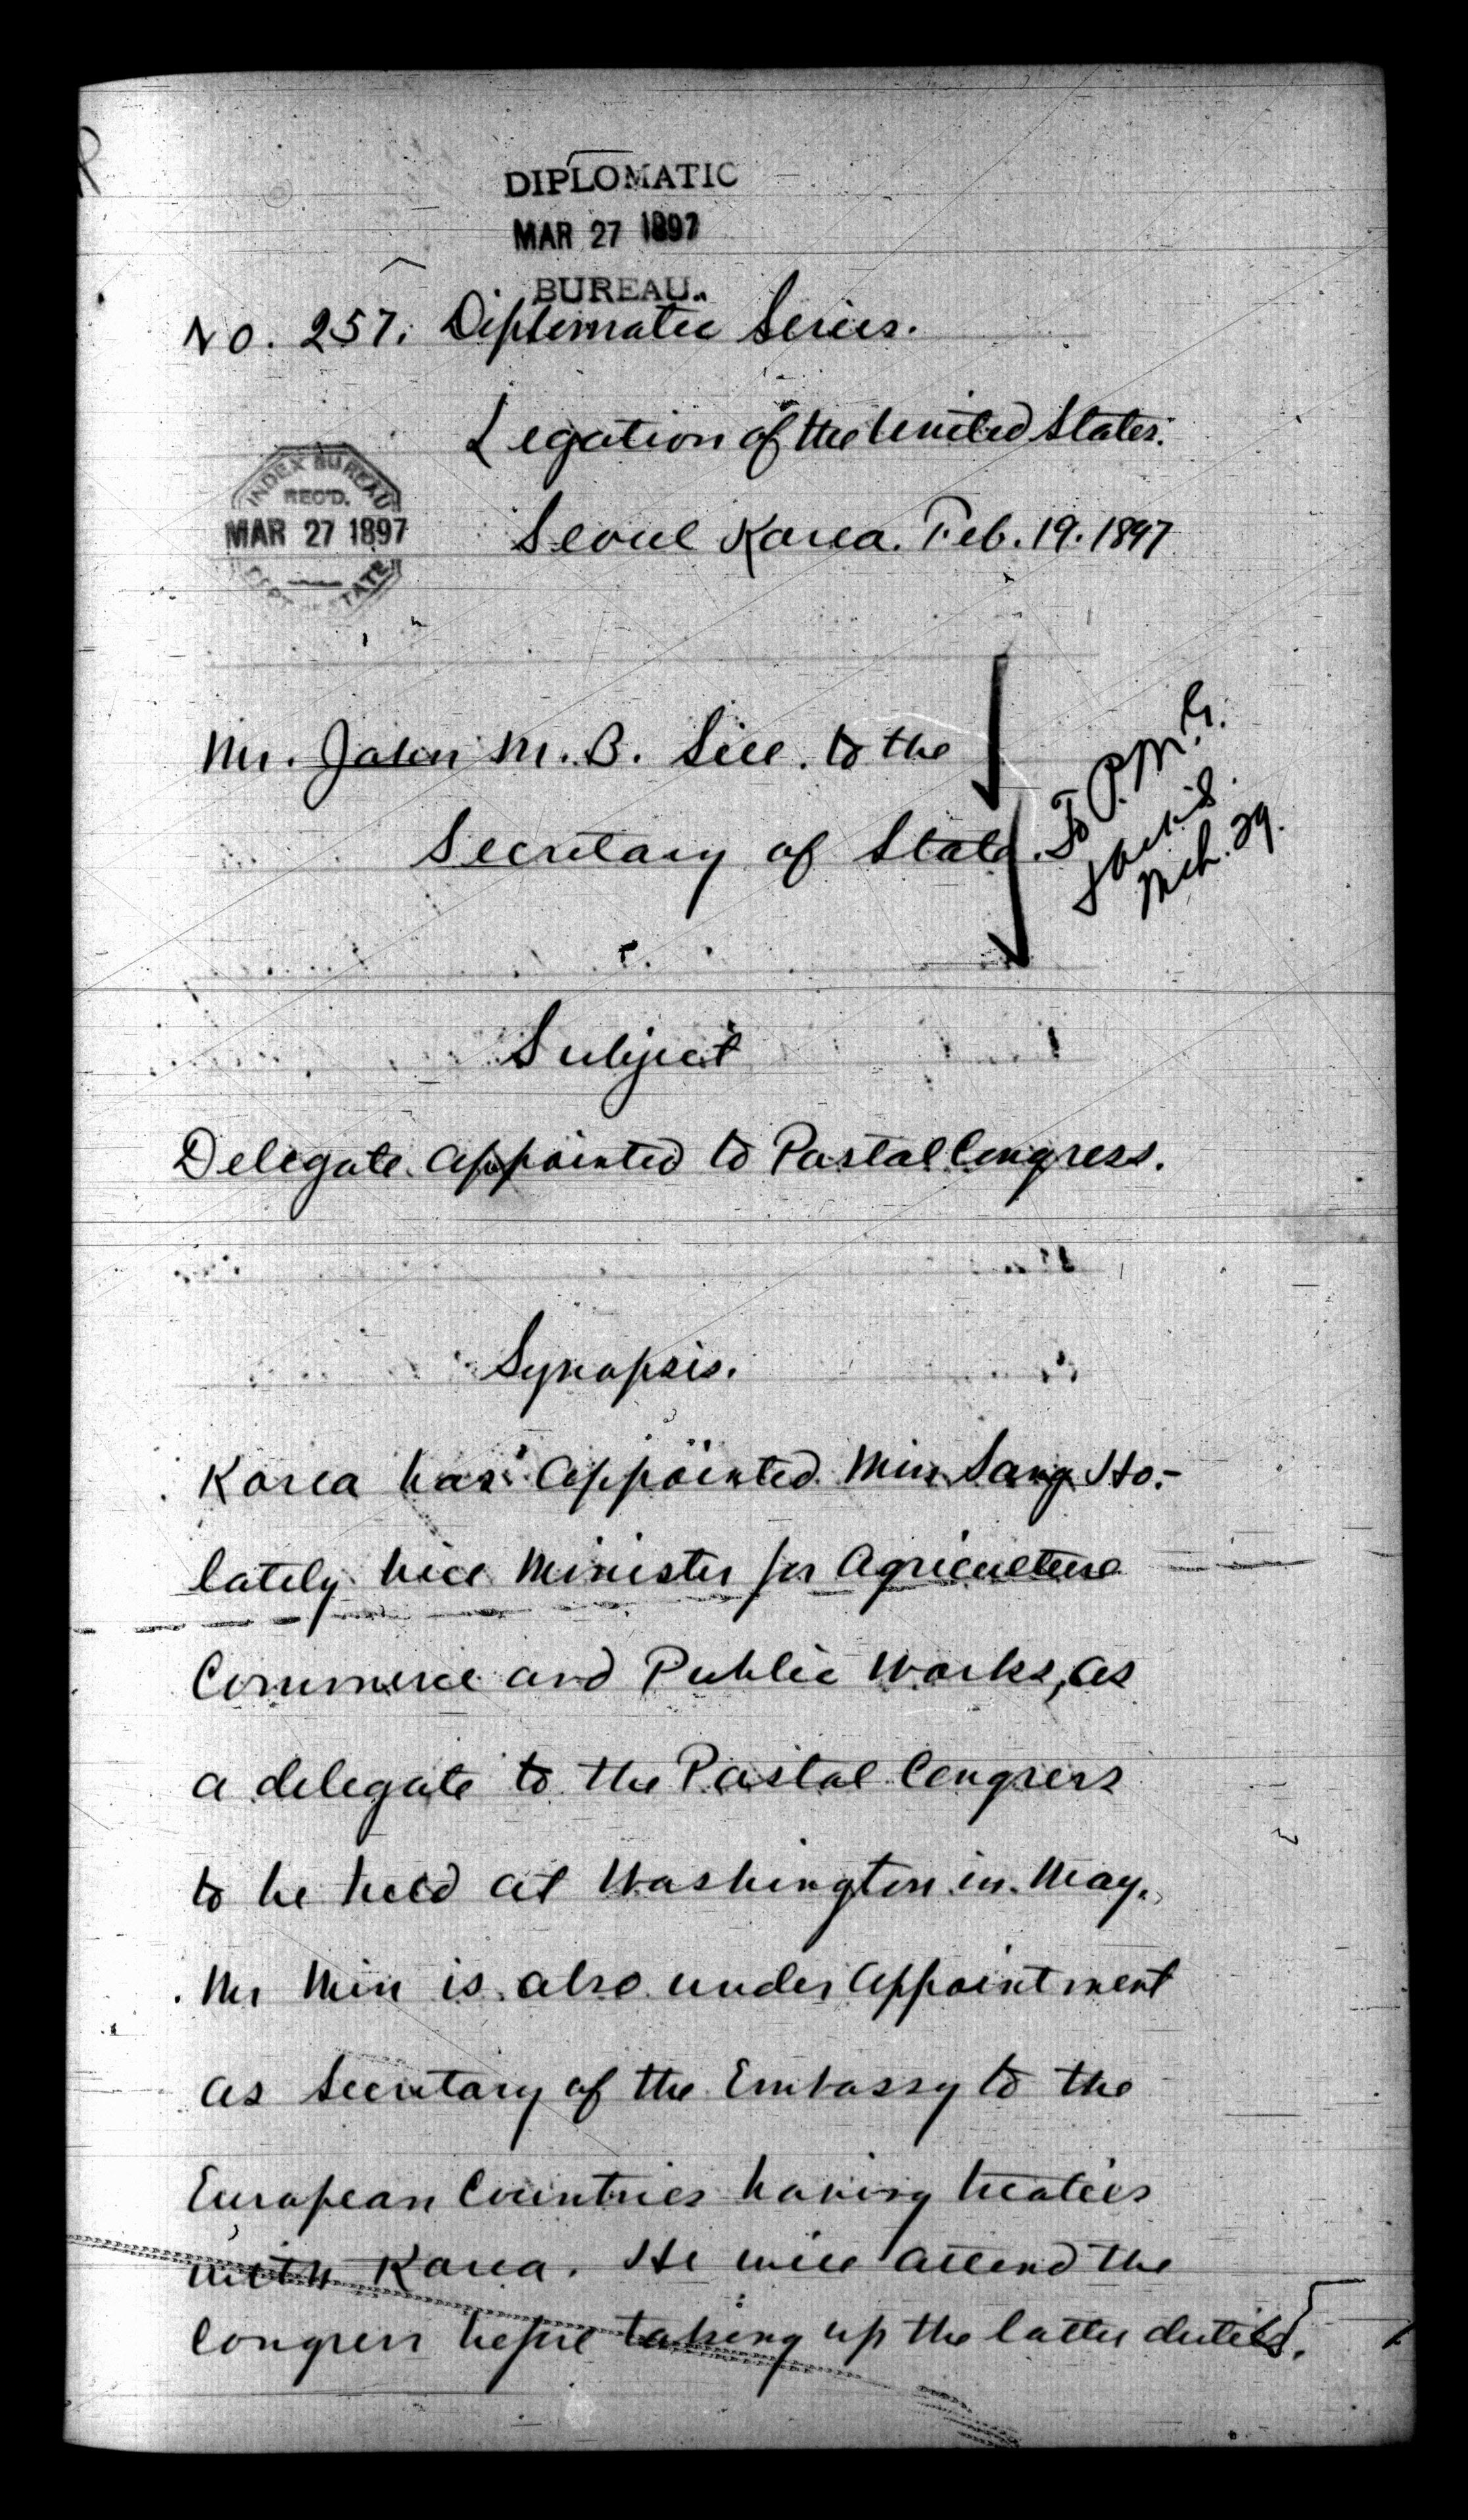 DIPLOMATIC
MAR 27 1897
BUREAU.
No. 257. Diplomatic Series.
Legation of the United States.
Seoul Korea. Feb. 19. 1897
INDEX BUREAU
REC'D.
MAR 27 1897
DEPT OF STATE
Mr. John M. B. Sill. to the
Secretary of State.
To P. M. G.
Mch. 29.
Subject
Delegate appointed to Postal Congress.
Synopsis.
Korea has appointed Min Sang Ho.-
lately Vice Minister for Agriculture
Commerce and Public Works, as
a delegate to the Postal Congress
to be held at Washington in May.
Mr Min is also under appointment
as Secretary of the Embassy to the
European Countries having treaties
with Korea. He will attend the
Congress before taking up the latter duties.